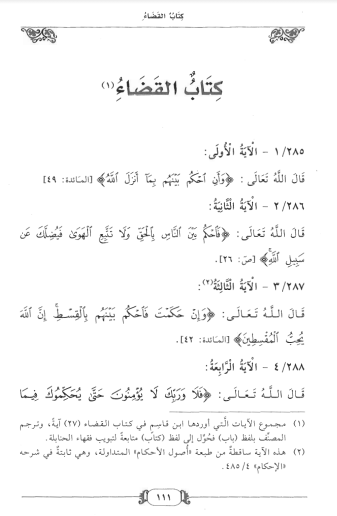 كِتَابُ القَضَاءِ
كِتَابُ القَضَاءُ (١)
١/٢٨٥ - الْآيَةُ الْأُولَى:
قَالَ اللَّهُ تَعَالَى: ﴿وَأَنِ احْكُم بَيْنَهُم بِمَا أَنزَلَ اللَّهُ﴾ [المائدة: ٤٩]
٢/٢٨٦ - الْآيَةُ الثَّانِيَةُ:
قَالَ اللَّهُ تَعَالَى: ﴿فَاحْكُم بَيْنَ النَّاسِ بِالْحَقِّ وَلَا تَتَّبِعِ الْهَوَىٰ فَيُضِلَّكَ عَن
سَبِيلِ اللَّهِ﴾ [ص: ٢٦].
٣/٢٨٧ - الْآيَةُ الثَّالِثَةُ(٢):
قَالَ اللَّهُ تَعَالَى: ﴿وَإِنْ حَكَمْتَ فَاحْكُم بَيْنَهُم بِالْقِسْطِ إِنَّ اللَّهَ
يُحِبُّ الْمُقْسِطِينَ﴾ [المائدة: ٤٢].
٤/٢٨٨ - الْآيَةُ الرَّابِعَةُ:
قَالَ اللَّهُ تَعَالَى: ﴿فَلَا وَرَبِّكَ لَا يُؤْمِنُونَ حَتَّىٰ يُحَكِّمُوكَ فِيمَا
(١) مجموع الآيات الَّتي أوردها ابن قاسِم في كتاب القضاء (٢٧) آيةً، وترجم
المصنِّف بلفظ (باب) فحُوِّل إلى لفظ (كتاب) متابعةً لتبويب فقهاء الحنابلة.
(٢) هذه الآية ساقطةٌ من طبعة «أصول الأحكام» المتداولة، وهي ثابتةٌ في شرحه
«الإحكام» ٤٨٥/٤.
١١١